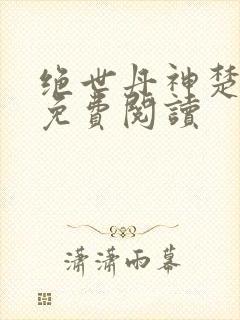 绝世丹神楚
免費閱讀
潇潇雨幕